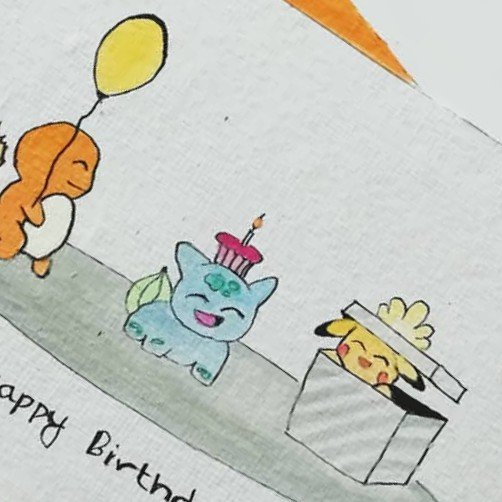 appy Birthd